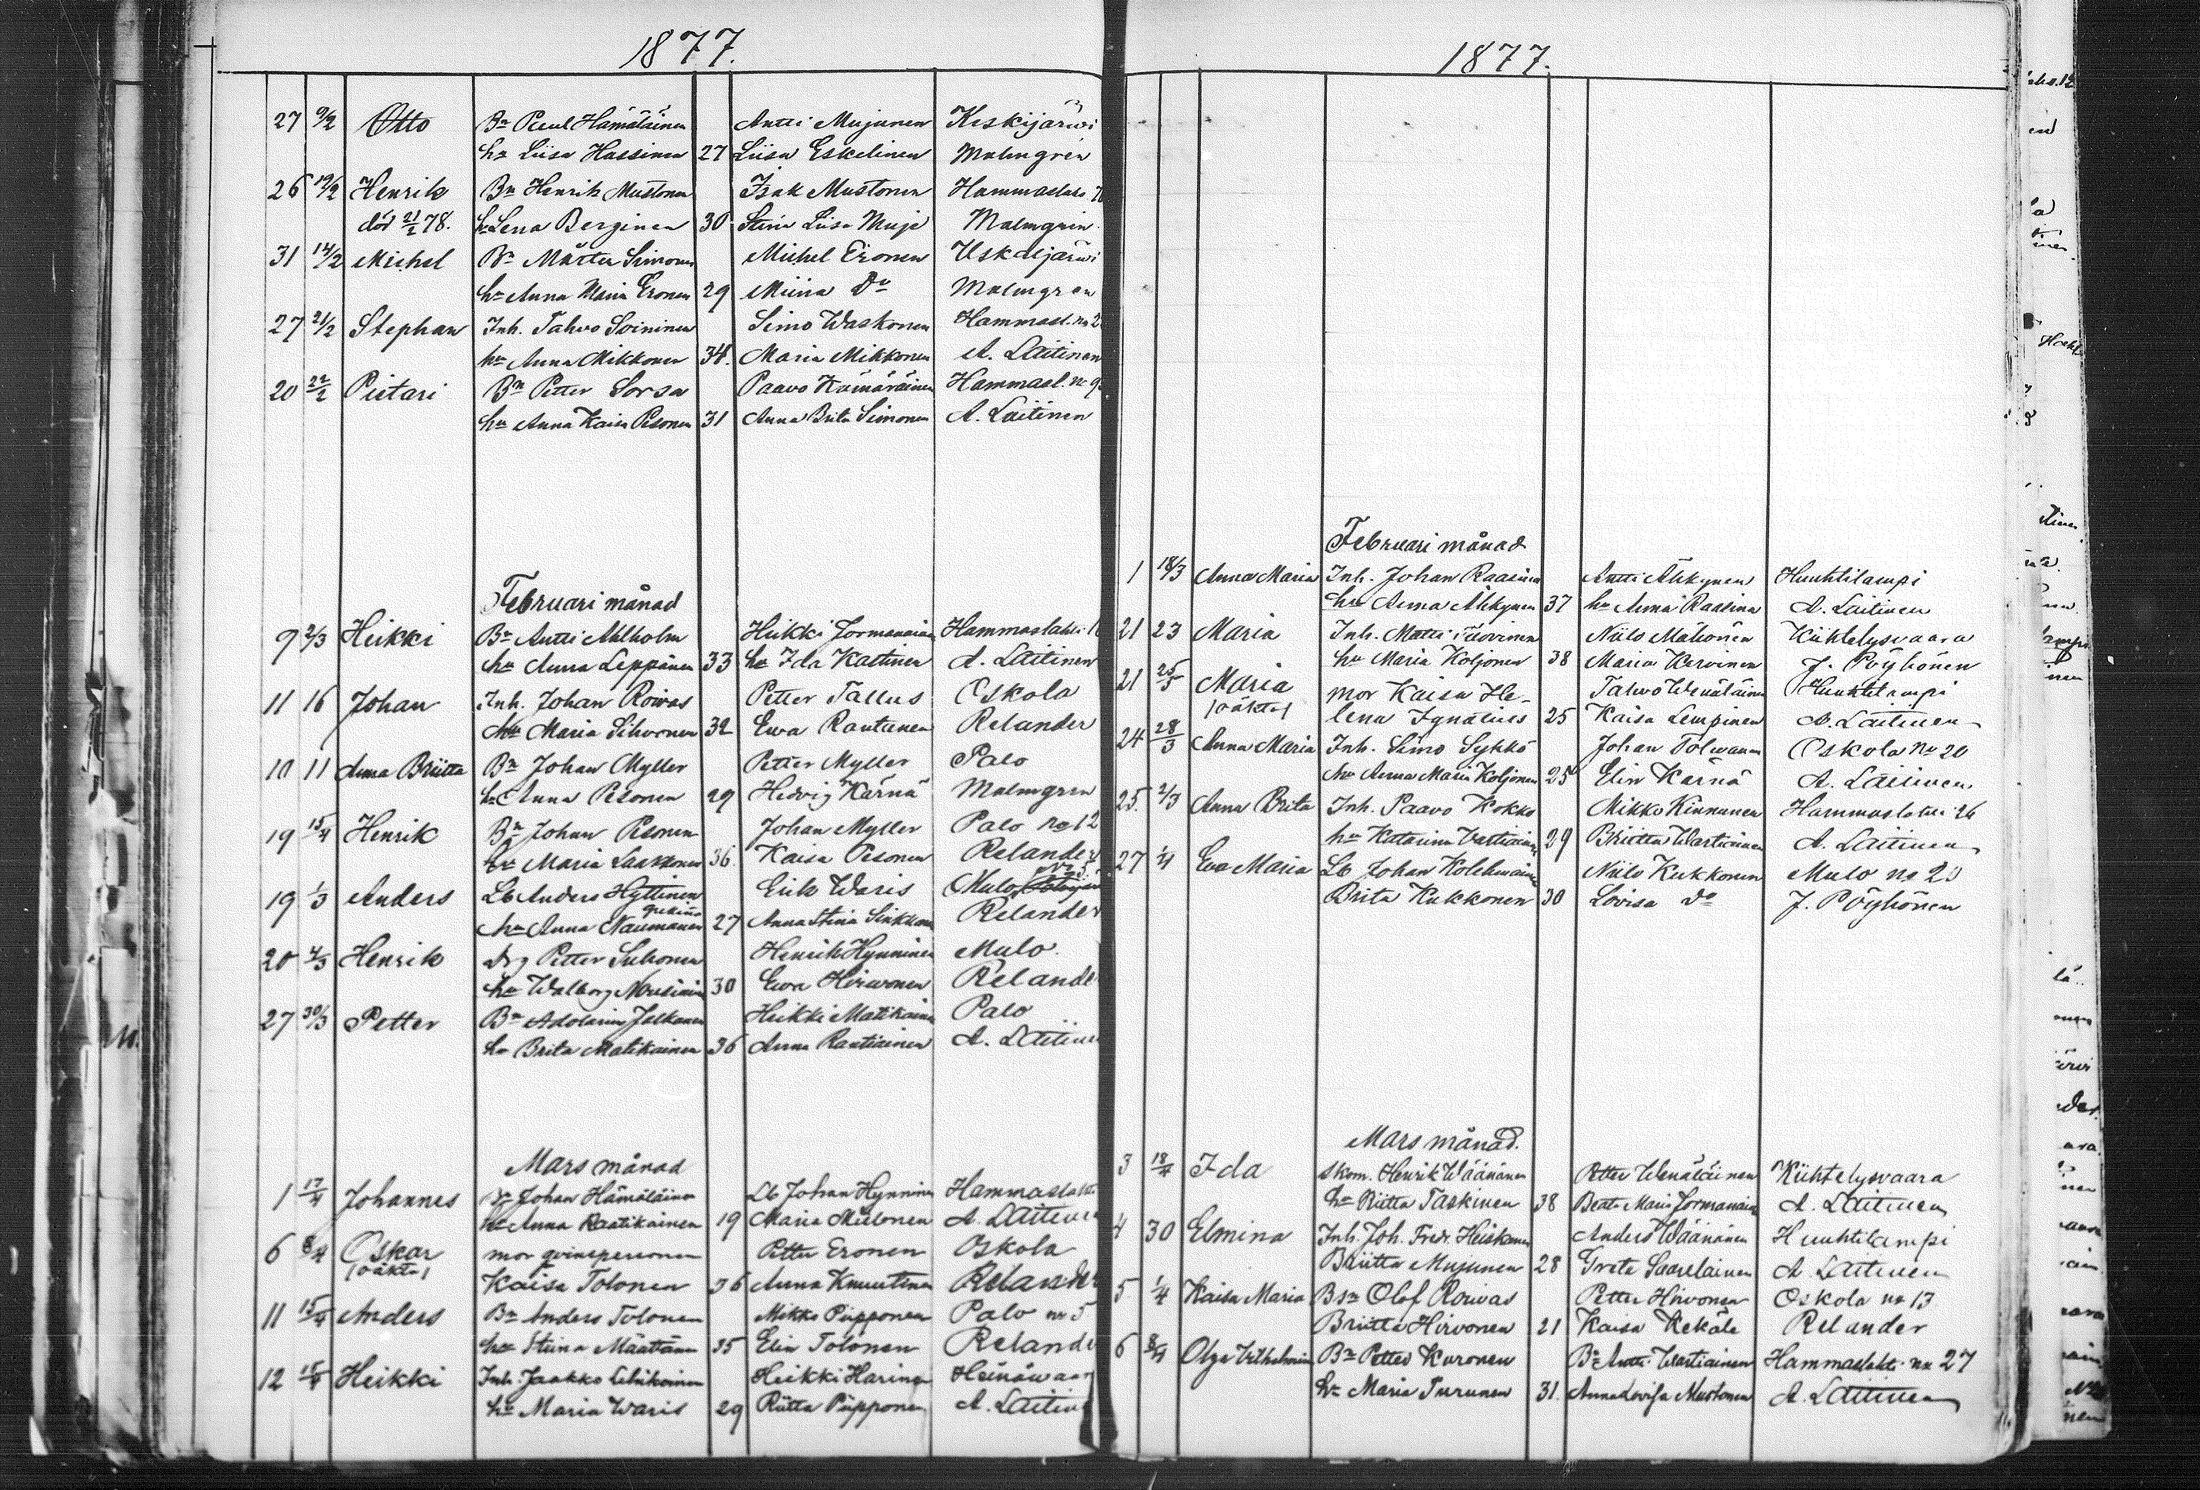 1877.
27 9/2 Otto Bn Paul Hämäläinen Antti Mujunen Keskijärvi
hu Liisa Hassinen 27 Liisa Eskelinen Malmgrén
26 19/2 Henrik Bn Henrik Mustonen Isak Mustonen Hammaslaks
död 21/2 78. h. Lena Berginen 30 Stina Liisa Muje Malmgrén
31 14/2 Michel Bn Mårten Simonen Michel Eronen
hu Anna Maria Eronen 29 Miina Do Malmgren
27 21/2 Stephan Inh. Tahvo Soininen Simo Waskonen Hammasl. no 2
hu Anna Mikkonen 34. Maria Mikkonen A. Laitinen
20 22/2 Pietari Bn Petter Sorsa Paavo Kämäräinen Hammasl. no 9
hu Anna Kaisa Pesonen 31 Anna Brita Simonen A. Laitinen
Februari månad
9 2/3 Heikki Bn Antti Ahlholm Heikki Jormanainen Hammaslahti
hu Anna Leppänen 33 hu Ida Kattinen A. Laitinen
11 16 Johan Inh. Johan Roivas Petter Tallus Oskola
hu Maria Sihvonen 32 Ewa Rautanen Relander
10 11 Anna Briitta Bn Johan Myller Petter Myller Palo
hu Anna Pesonen 29 Hedvig Kärnä Malmgren
19 15/4 Henrik Bn Johan Pesonen Johan Myller Palo no 12
hu Maria Laakkonen 36. Kaisa Pesonen Relander
19 1/3 Anders Lb Anders Hyttinen Erik Waris Mulo
hu Anna Naumanen 27 Anna Stina Sinkkonen Relander
20 4/3 Henrik Drg Petter Suhonen Henrik Hynninen Mulo.
hu Walborg Nousiainen 30 Ewa Hirvonen Relander
27 30/3 Petter Bn Adolarius Jalkanen Heikki Matikainen Palo
hu Brita Matikainen 36 Anna Rautiainen A. Laitinen
Mars månad
1 17/4 Johannes Bn Johan Hämäläinen Lb Johan Hynninen Hammaslaht
hu Anna Raatikainen 19 Maria Mielonen A. Laitinen
6 8/4 Oskar mor qvinspersonen Petter Eronen Oskola
(oäkta) Kaisa Tolonen 36 Anna Knuutinen Relander
11 15/4 Anders Bn Anders Tolonen Mikko Piipponen Palo no 5
hu Stina Määttänen 35 Elin Tolonen Relander
12 15/4 Heikki Inh. Jaakko Lehikoinen Heikki Harinen Heinävaar
hu Maria Waris 29 Riitta Piipponen A. Laitine
1877.
Februari månad
1 18/3 Anna Maria Inh. Johan Raasina Antti Ähkynen Huuhtilampi
hu Anna Ähkynen 37 hu Anna Raasina A. Laitinen
21 23 Maria Inh. Matti Toivinen Niilo Mähönen Kiihtelysvaara
hu Maria Koljonen 38 Maria Kervinen J. Pöyhönen
21 25/3 Maria mor Kaisa He- Tahvo Wenäläinen Huuhtilampi
(oäkta) lena Ignatius 25 Kaisa Lempinen A. Laitinen
24 28/3 Anna Maria Inh. Simo Sykkö Johan Tolvanen Oskola no 20
hu Anna Maria Koljonen 25 Elin Kärnä A. Laitinen
25. 2/3 Anna Brita Inh. Paavo Kokko Mikko Kinnunen Hammaslahti 26
hu Katarina Vartiainen 29 Briitta Wartiainen A. Laitinen
27 1/4 Eva Maria Lb Johan Kolehmainen Niilo Kukkonen Mulo no 23
Brita Kukkonen 30 Lovisa Do J. Pöyhönen
Mars månad.
3 18/4 Ida Skom. Henrik Wäänänen Petter Wenäläinen Kiihtelysvaara
hu Riitta Taskinen 38 Beata Maria Jormanainen A. Laitinen
4 30 Elmina Inh. Joh. Fredr. Heiskanen Anders Wäänänen Huuhtilampi
Briitta Mujunen 28 Greta Saarelainen A. Laitinen
5 1/4 Kaisa Maria Bsn Olof Roivas Petter Hirvonen Oskola no 13
Briitta Hirvonen 21 Kaisa Kekäle Relander
6 8/4 Olga Wilhelmina Bn Petter Kuronen Bn Antti Wartiainen Hammaslahti no 27
hu Maria Turunen 31. Anna Lovisa Mustonen A. Laitinen